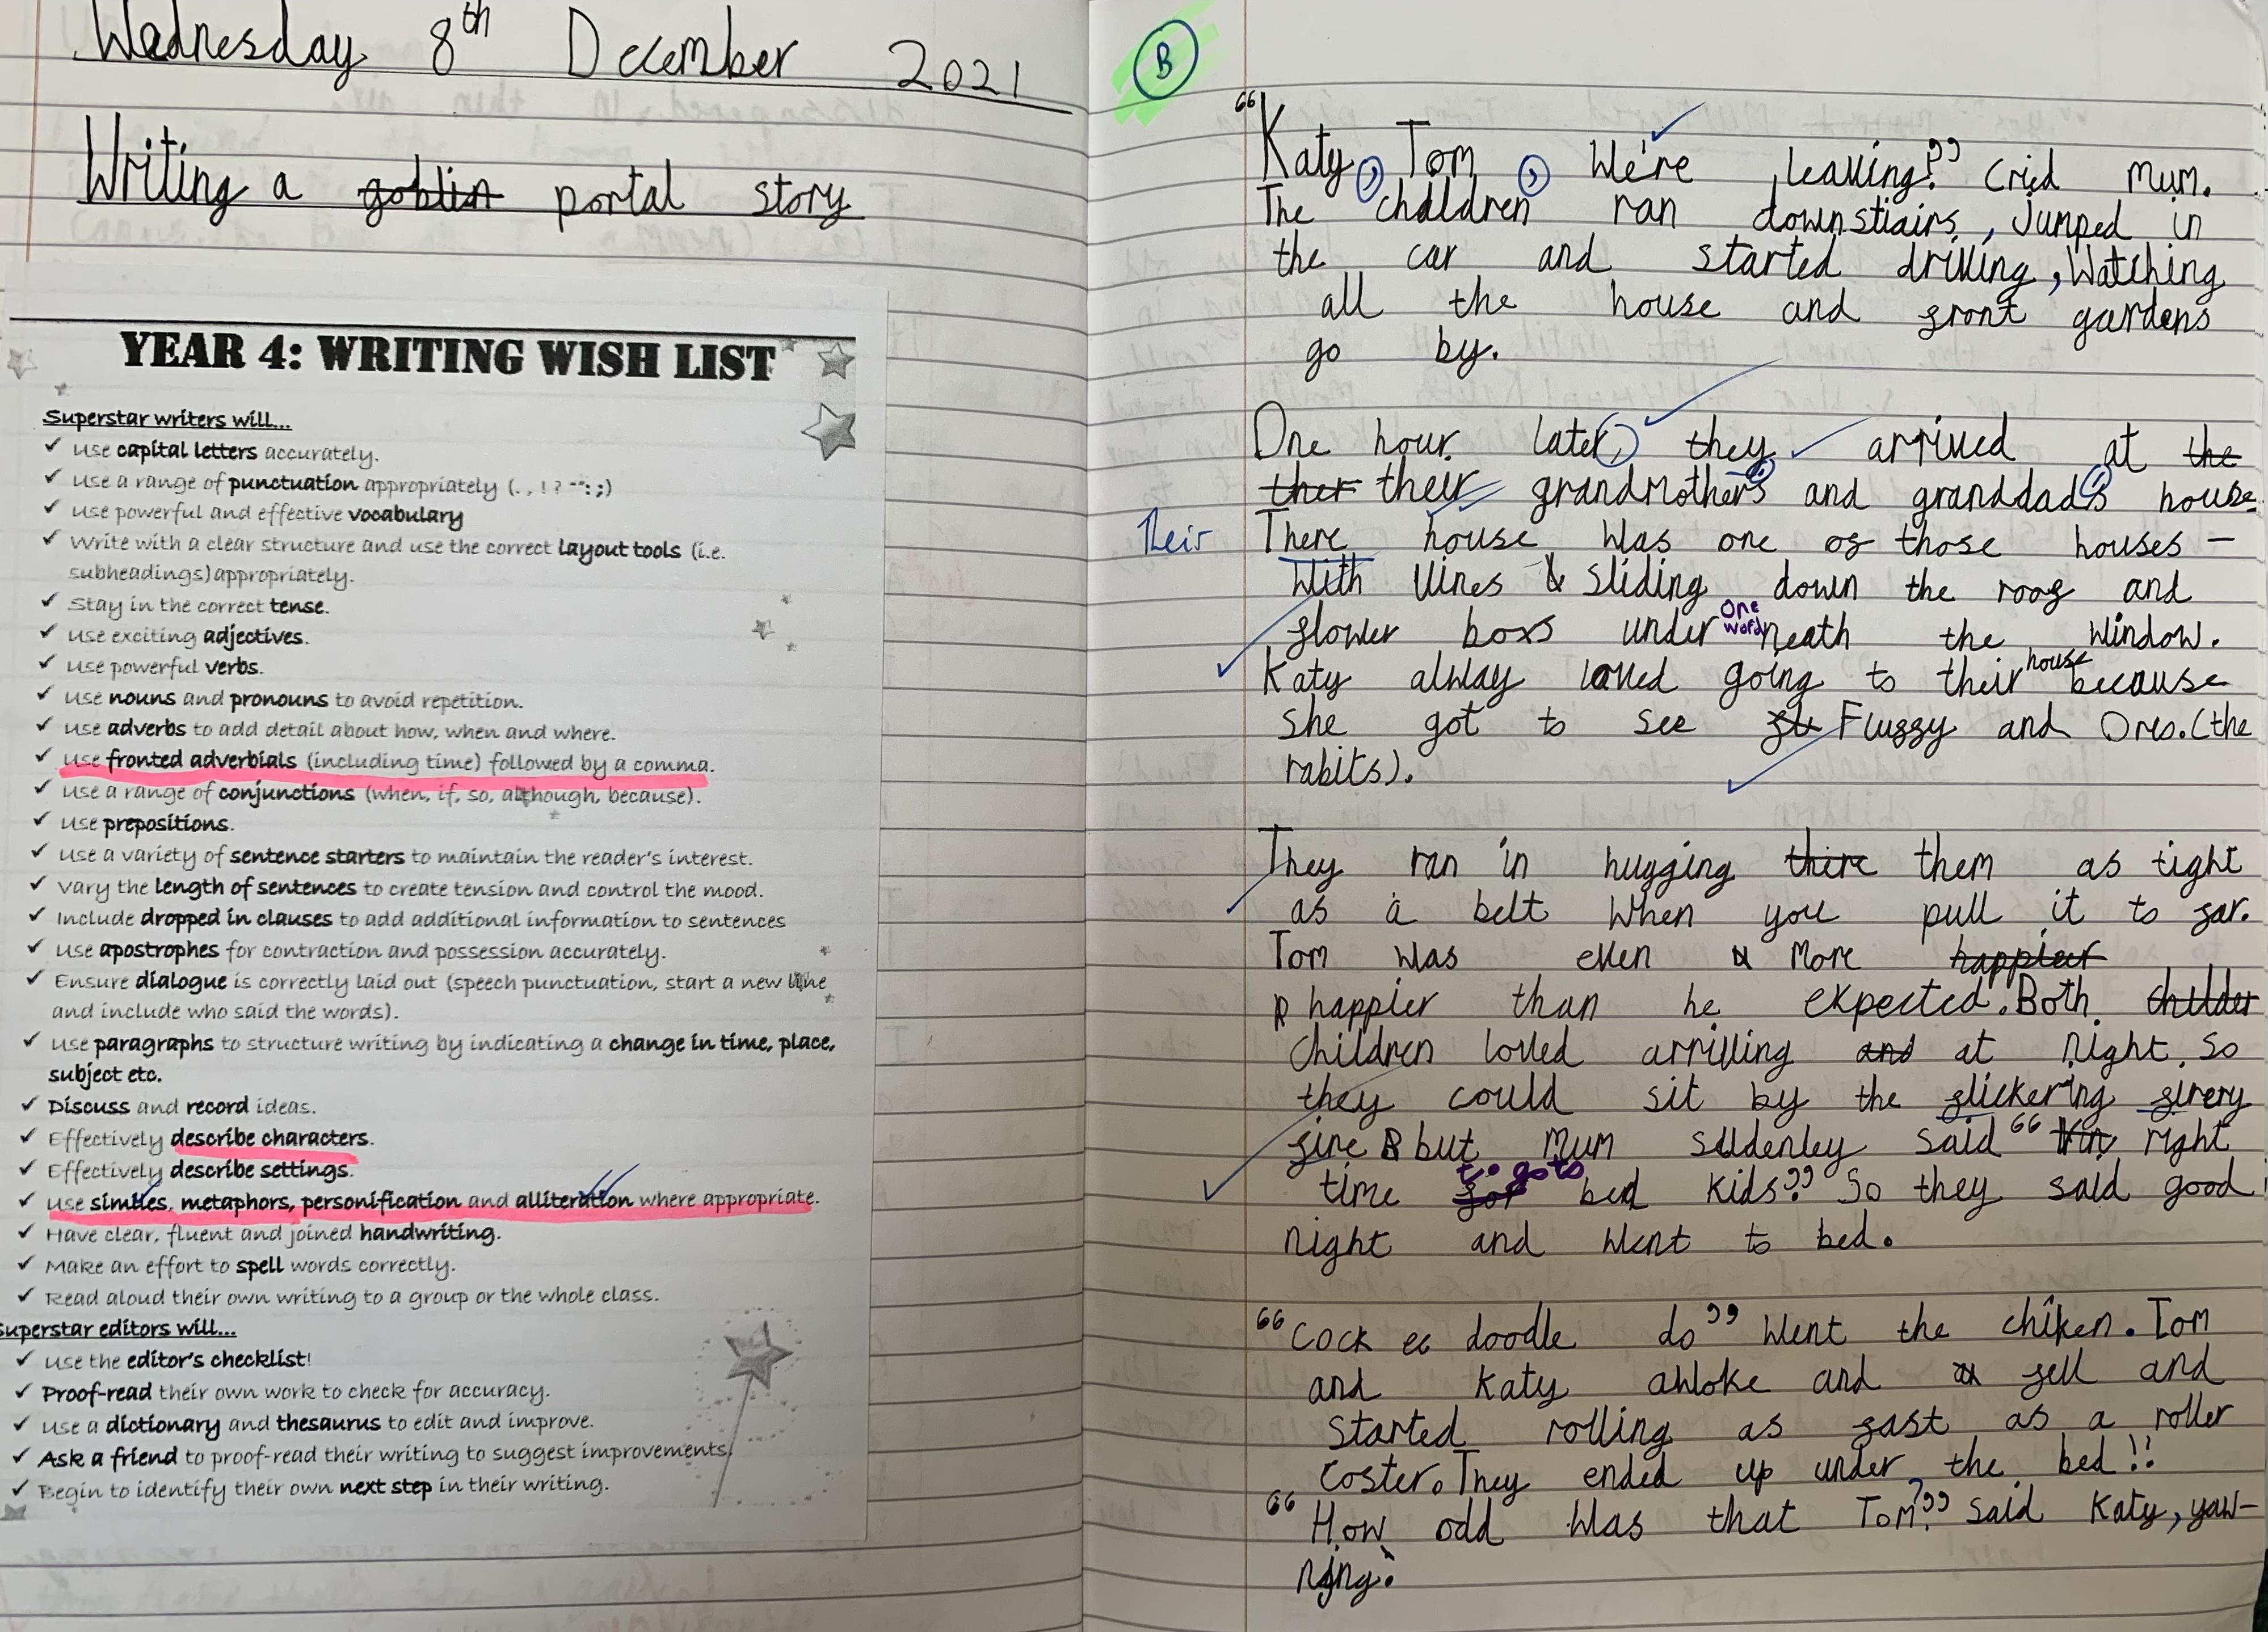 Wednesday 8th December 2021
Writing a goblin portal story
YEAR 4: WRITING WISH LIST
Superstar writers will...
✓ Use capital letters accurately.
✓ Use a range of punctuation appropriately (. , ! ? “”: ;)
✓ Use powerful and effective vocabulary
✓ Write with a clear structure and use the correct layout tools (i.e.
subheadings) appropriately.
✓ Stay in the correct tense.
✓ Use exciting adjectives.
✓ Use powerful verbs.
✓ Use nouns and pronouns to avoid repetition.
✓ Use adverbs to add detail about how, when and where.
✓ Use fronted adverbials (including time) followed by a comma.
✓ Use a range of conjunctions (when, if, so, although, because).
✓ Use prepositions.
✓ Use a variety of sentence starters to maintain the reader's interest.
✓ Vary the length of sentences to create tension and control the mood.
✓ Include dropped in clauses to add additional information to sentences
✓ Use apostrophes for contraction and possession accurately.
✓ Ensure dialogue is correctly laid out (speech punctuation, start a new line
and include who said the words).
✓ Use paragraphs to structure writing by indicating a change in time, place,
subject etc.
✓ Discuss and record ideas.
✓ Effectively describe characters.
✓ Effectively describe settings.
✓ Use similes, metaphors, personification and alliteration where appropriate.
✓ Have clear, fluent and joined handwriting.
✓ Make an effort to spell words correctly.
✓ Read aloud their own writing to a group or the whole class.
Superstar editors will...
✓ Use the editor's checklist!
✓ Proof-read their own work to check for accuracy.
✓ Use a dictionary and thesaurus to edit and improve.
✓ Ask a friend to proof-read their writing to suggest improvements.
✓ Begin to identify their own next step in their writing.
B
“Katy, Tom, We're leaving!” cried Mum.
The chaldren ran downstiairs, Jumped in
the car and started driving, Watching
all the house and front gardens
go by.
One hour later, they arrived at the
ther their grandmother's and granddad's house.
Their There house was one of those houses -
with vines sliding down the roof and
flower boxs under one word neath the window.
Katy alway loved going to their house because
she got to see fl Fluffy and Oreo. (the
rabits).
They ran in hugging there them as tight
as a belt when you pull it to far.
Tom was even more happier
happier than he expected. Both childer
children loved arriving and at night so
they could sit by the flickering firery
fire but Mum suddenley said “ right
time for to go to bed kids!” So they said good
night and went to bed.
“Cock ee doodle do” went the chiken. Tom
and Katy awoke and fell and
started rolling as fast as a roller
coster. They ended up under the bed!!
“How odd was that Tom?” said Katy, yaw-
ning.